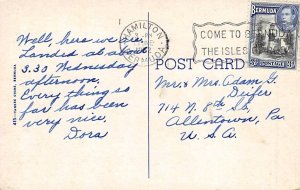 HAMILTON
BERMUDA
COME TO B
THE ISLES
BERMUDA
POSTAGE
POST CARD
Well, here we are
Landed at about
3.30 Wednesday
afternoon.
Every thing so
far has been
very nice.
Dora
Mr. & Mrs. Adam G.
Deifer
714 N. 8th St,
Allentown, Pa.
U. S. A.